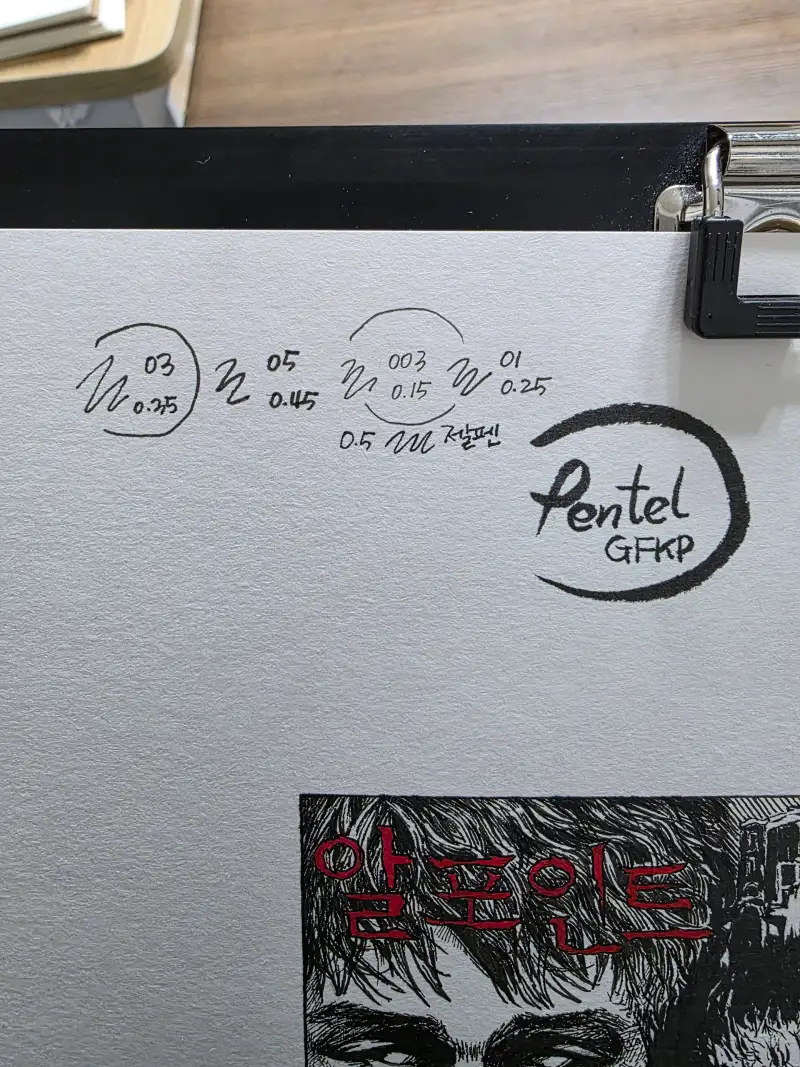 03 05 003 01
0.35 0.45 0.15 0.25
0.5 젤펜
Pentel
GFKP
알포인트